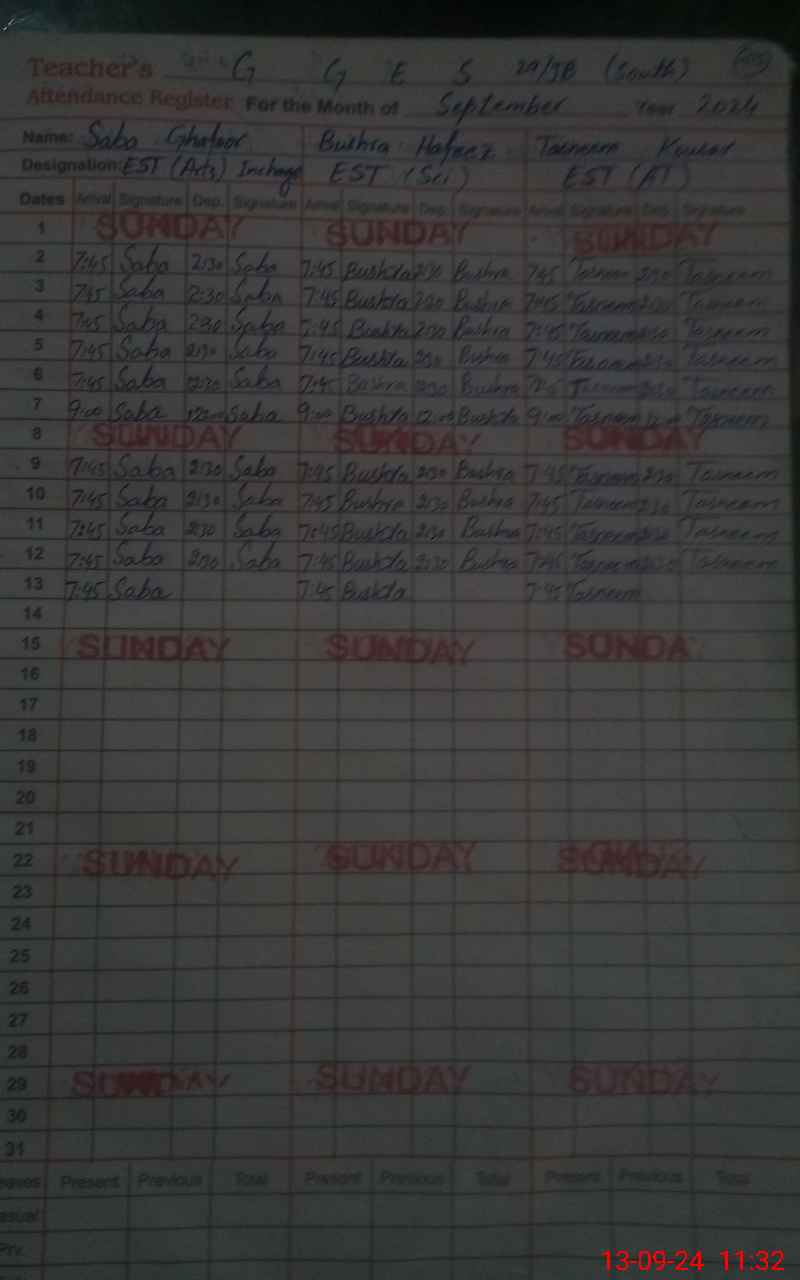 Teacher's G G E S 29/JB (South)
Attendance Register For the Month of September Year 2024
Name: Saba Ghafoor Bushra Hafeez Tasneem Kausar
Designation: EST (Arts) Incharge EST (Sci) EST (AT)
Dates Arrival Signature Dep. Signature Arrival Signature Dep. Signature Arrival Signature Dep. Signature
1 SUNDAY SUNDAY SUNDAY
2 7:45 Saba 2:30 Saba 7:45 Bushra 2:30 Bushra 7:45 Tasneem 2:30 Tasneem
3 7:45 Saba 2:30 Saba 7:45 Bushra 2:30 Bushra 7:45 Tasneem 2:30 Tasneem
4 7:45 Saba 2:30 Saba 7:45 Bushra 2:30 Bushra 7:45 Tasneem 2:30 Tasneem
5 7:45 Saba 2:30 Saba 7:45 Bushra 2:30 Bushra 7:45 Tasneem 2:30 Tasneem
6 7:45 Saba 12:30 Saba 7:45 Bushra Bushra 7:45 Tasneem Tasneem
7 9:00 Saba 12:00 Saba 9:00 Bushra 12:00 Bushra 9:00 Tasneem 12:00 Tasneem
8 SUNDAY SUNDAY SUNDAY
9 7:45 Saba 2:30 Saba 7:45 Bushra 2:30 Bushra 7:45 Tasneem 2:30 Tasneem
10 7:45 Saba 2:30 Saba 7:45 Bushra 2:30 Bushra 7:45 Tasneem 2:30 Tasneem
11 7:45 Saba 2:30 Saba 7:45 Bushra 2:30 Bushra 7:45 Tasneem 2:30 Tasneem
12 7:45 Saba 2:30 Saba 7:45 Bushra 2:30 Bushra 7:45 Tasneem 2:30 Tasneem
13 7:45 Saba 7:45 Bushra 7:45 Tasneem
14
15 SUNDAY SUNDAY SUNDA
16
17
18
19
20
21
22 SUNDAY SUNDAY SUNDAY
23
24
25
26
27
28
29 SUNDAY SUNDAY SUNDAY
30
31
eaves Present Previous Total Present Previous Total Present Previous Total
asual
Prv.
13-09-24 11:32